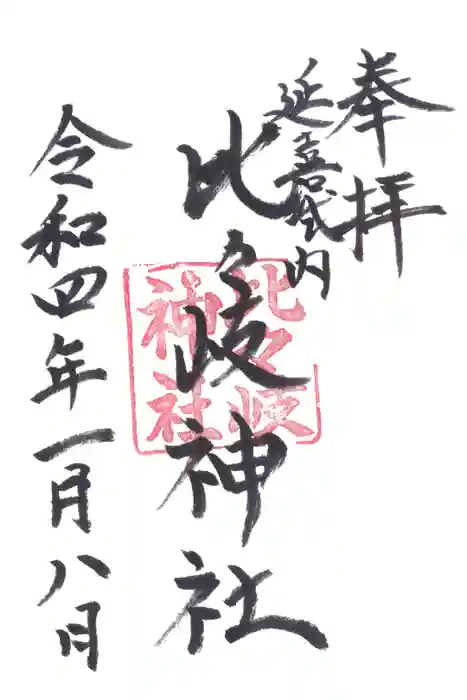 奉拝
延喜式内
比々岐神社
令和四年一月八日
比々岐
神社